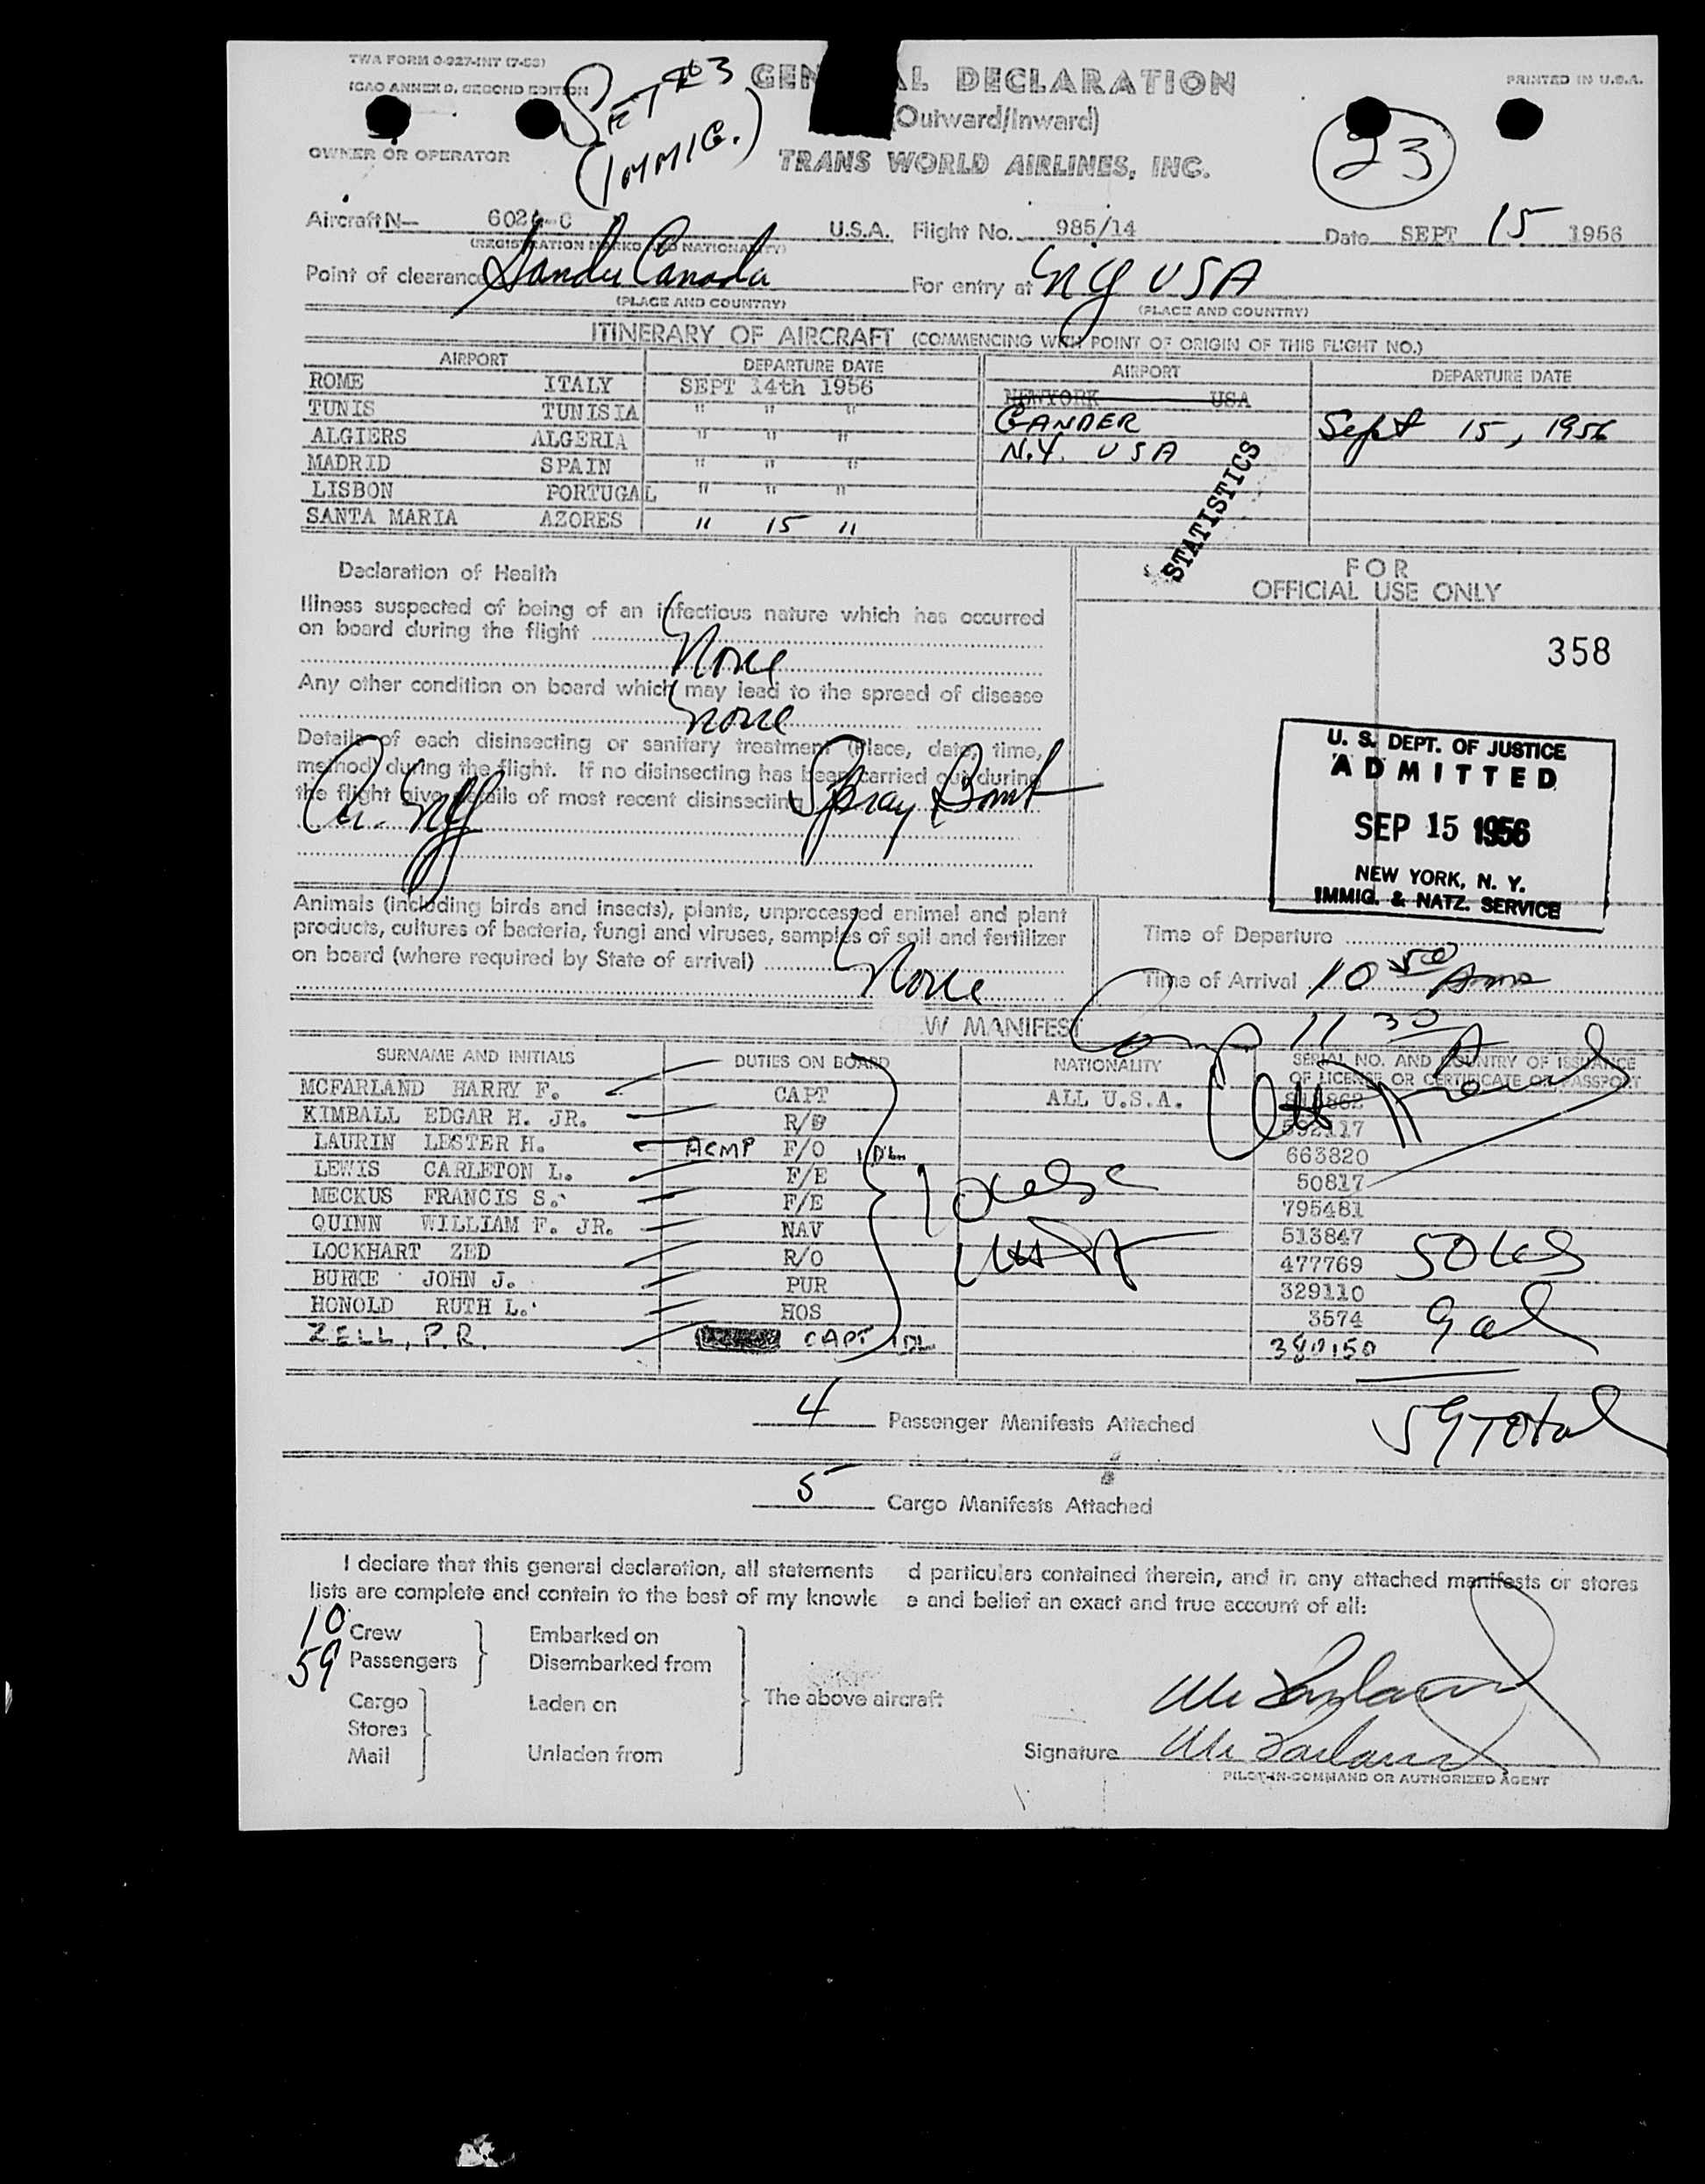 TWA FORM O-927-INT (7-55)
ICAO ANNEX 9, SECOND EDITION
SET #3
(IMMIG.)
GEN AL DECLARATION
(Outward/Inward)
PRINTED IN U.S.A.
OWNER OR OPERATOR
TRANS WORLD AIRLINES, INC.
23
Aircraft N— 602 -C U.S.A. Flight No. 985/14 Date SEPT 15 1956
(REGISTRATION MARKS AND NATIONALITY)
Point of clearance Gander Canada For entry at NY USA
(PLACE AND COUNTRY) (PLACE AND COUNTRY)
ITINERARY OF AIRCRAFT (COMMENCING WITH POINT OF ORIGIN OF THIS FLIGHT NO.)
AIRPORT DEPARTURE DATE AIRPORT DEPARTURE DATE
ROME ITALY SEPT 14th 1956 NEWYORK USA
TUNIS TUNISIA " " " GANDER Sept 15, 1956
ALGIERS ALGERIA " " " N.Y. USA
MADRID SPAIN " " "
LISBON PORTUGAL " " "
SANTA MARIA AZORES " 15 "
STATISTICS
Declaration of Health
FOR
OFFICIAL USE ONLY
Illness suspected of being of an infectious nature which has occurred
on board during the flight
None
358
Any other condition on board which may lead to the spread of disease
none
Details of each disinsecting or sanitary treatment (Place, date, time,
method) during the flight. If no disinsecting has been carried out during
the flight give details of most recent disinsecting
Spray Bomb
U. S. DEPT. OF JUSTICE
ADMITTED
SEP 15 1956
NEW YORK, N. Y.
IMMIG. & NATZ. SERVICE
Animals (including birds and insects), plants, unprocessed animal and plant
products, cultures of bacteria, fungi and viruses, samples of soil and fertilizer
on board (where required by State of arrival)
None
Time of Departure
Time of Arrival 10 50 Am
Comp 11 30
W MANIFEST
SURNAME AND INITIALS DUTIES ON BOARD NATIONALITY SERIAL NO. AND COUNTRY OF ISSUANCE
OF LICENSE OR CERTIFICATE OR PASSPORT
MCFARLAND HARRY F. CAPT ALL U.S.A.
KIMBALL EDGAR H. JR.
LAURIN LESTER H. ACMP F/O 663820
LEWIS CARLETON L. F/E 50817
MECKUS FRANCIS S. F/E 795481
QUINN WILLIAM F. JR. NAV 513847
LOCKHART ZED R/O 477769
BURKE JOHN J. PUR 329110
HONOLD RUTH L. HOS 3574
ZELL, P.R. CAPT
59 Total
4 Passenger Manifests Attached
5 Cargo Manifests Attached
I declare that this general declaration, all statements d particulars contained therein, and in any attached manifests or stores
lists are complete and contain to the best of my knowle e and belief an exact and true account of all:
10 Crew Embarked on
59 Passengers Disembarked from
Cargo Laden on The above aircraft
Stores
Mail Unladen from
McFarland
Signature McFarland
PILOT-IN-COMMAND OR AUTHORIZED AGENT